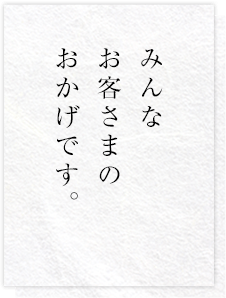 みんな
お客さまの
おかげです。